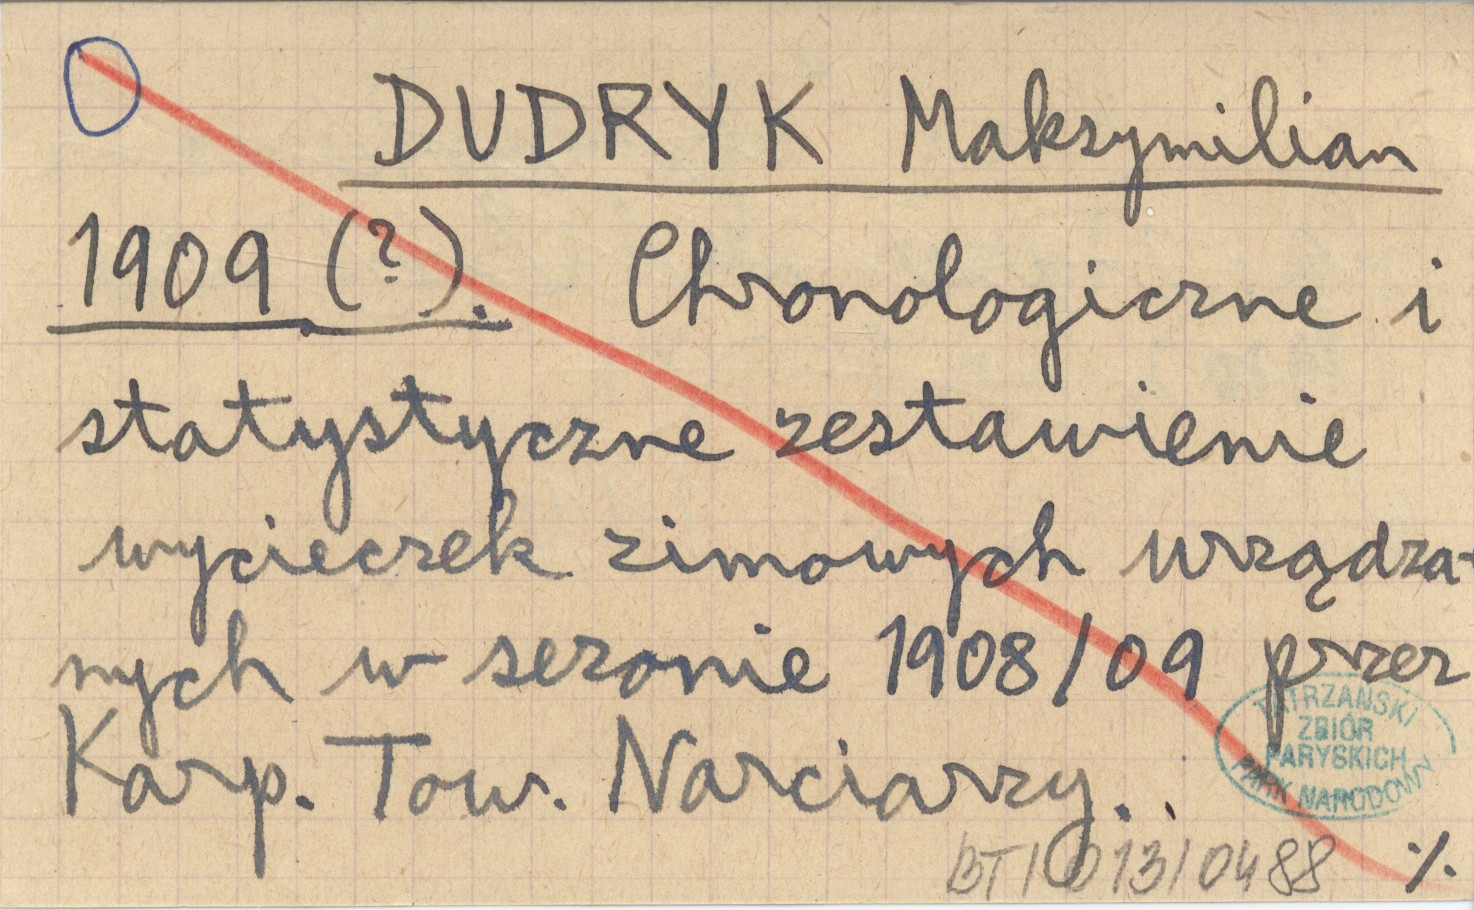 DUDRYK Maksymilian
1909 (?). Chronologiczne i
statystyczne zestawienie
wycieczek zimowych urządza-
nych w sezonie 1908/09 przez
Karp. Tow. Narciarzy.
TATRZAŃSKI
ZBIÓR
PARYSKICH
PARK NARODOWY
BT/013/0488 ./.